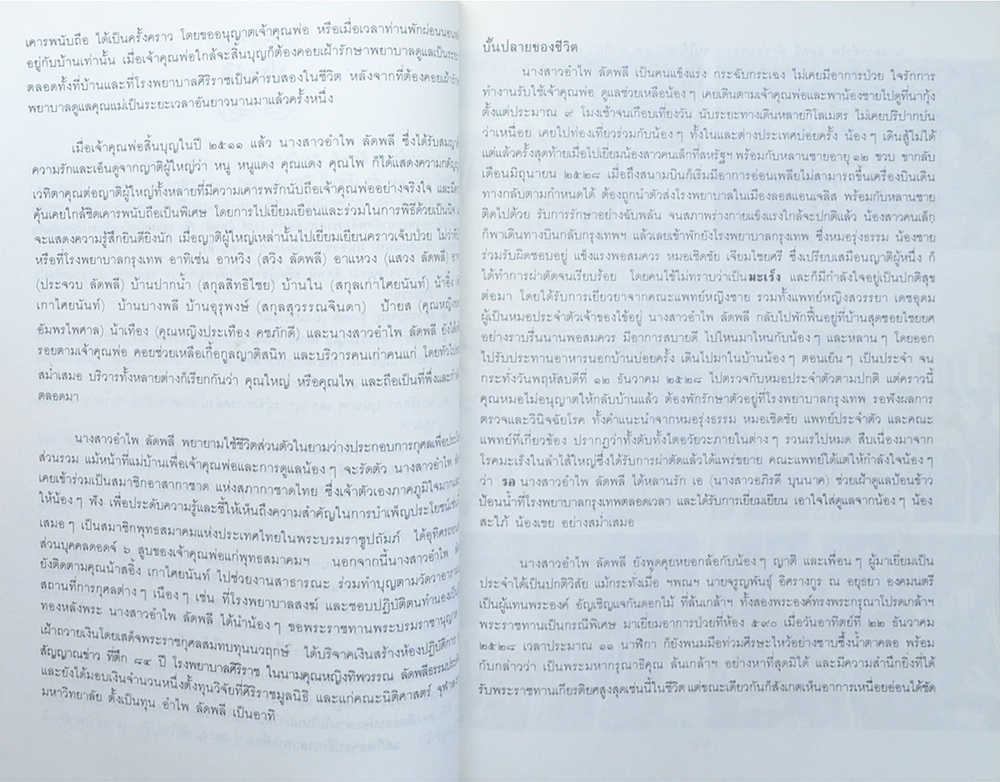 เคารพนับถือ ได้เป็นครั้งคราว โดยขออนุญาตเจ้าคุณพ่อ หรือเมื่อเวลาท่านพักผ่อน
อยู่กับบ้านเท่านั้น เมื่อเจ้าคุณพ่อใกล้จะสิ้นบุญก็ต้องคอยเฝ้ารักษาพยาบาลดูแลเป็น
ตลอดทั้งที่บ้านและที่โรงพยาบาลศิริราชเป็นคำรบสองในชีวิต หลังจากที่ต้องคอยเฝ้า
พยาบาลดูแลคุณแม่เป็นระยะเวลาอันยาวนานมาแล้วครั้งหนึ่ง
เมื่อเจ้าคุณพ่อสิ้นบุญในปี ๒๕๑๑ แล้ว นางสาวอำไพ ลัดพลี ซึ่งได้รับ
ความรักและเอ็นดูจากญาติผู้ใหญ่ว่า หนู หนูแดง คุณแดง คุณไพ ก็ได้แสดงความ
เวทิตาคุณต่อญาติผู้ใหญ่ทั้งหลายที่มีความเคารพรักนับถือเจ้าคุณพ่ออย่างจริงใจ
คุ้นเคยใกล้ชิดเคารพนับถือเป็นพิเศษ โดยการไปเยี่ยมเยือนและร่วมในการพิธีด้วย
จะแสดงความรู้สึกยินดียิ่งนัก เมื่อญาติผู้ใหญ่เหล่านั้นไปเยี่ยมเยียนคราวเจ็บป่วย
หรือที่โรงพยาบาลกรุงเทพ อาทิเช่น อาหวิง (สวิง ลัดพลี) อาแหวง (แสวง ลัดพลี)
(ประจวบ ลัดพลี) บ้านปากน้ำ (สกุลสิทธิไชย) บ้านใน (สกุลเก่าไศยนันท์)
เกาไศยนันท์) บ้านบางพลี บ้านอุรุพงษ์ (สกุลสุวรรณจินดา) ป้ายส
อัมพรไพศาล) น้าเทือง (คุณหญิงประเทือง คชภักดี) และนางสาวอำไพ ลัดพลี
รอยตามเจ้าคุณพ่อ คอยช่วยเหลือเกื้อกูลญาติสนิท และบริวารคนเก่าคนแก่
สม่ำเสมอ บริวารทั้งหลายต่างก็เรียกกันว่า คุณใหญ่ หรือคุณไพ และถือเป็นที่พึ่ง
ตลอดมา
นางสาวอำไพ ลัดพลี พยายามใช้ชีวิตส่วนตัวในยามว่างประกอบการกุศล
ส่วนรวม แม้หน้าที่แม่บ้านเพื่อเจ้าคุณพ่อและการดูแลน้อง ๆ จะรัดตัว นางสาวอำไพ
เคยเข้าร่วมเป็นสมาชิกอาสากาชาด แห่งสภากาชาดไทย ซึ่งเจ้าตัวเองภาคภูมิใจ
ให้น้อง ๆ ฟัง เพื่อประดับความรู้และชี้ให้เห็นถึงความสำคัญในการบำเพ็ญประโยชน์
เสมอ ๆ เป็นสมาชิกพุทธสมาคมแห่งประเทศไทยในพระบรมราชูปถัมภ์ ได้อุทิศ
ส่วนบุคคลดอดจ์ ๖ สูบของเจ้าคุณพ่อแก่พุทธสมาคมฯ นอกจากนี้นางสาวอำไพ
ยังติดตามคุณน้าสอิ้ง เกาไศยนันท์ ไปช่วยงานสาธารณะ ร่วมทำบุญตามวัดวา
สถานที่การกุศลต่าง ๆ เนือง ๆ เช่น ที่โรงพยาบาลสงฆ์ และชอบปฏิบัติตนทำนอง
ทองหลังพระ นางสาวอำไพ ลัดพลี ได้นำน้อง ๆ ขอพระราชทานพระบรมราชานุญาต
เฝ้าถวายเงินโดยเสด็จพระราชกุศลสมทบทุนนวฤกษ์ ได้บริจาคเงินสร้างห้องปฏิบัติการ
สัญญาณข่าว ที่ตึก ๘๔ ปี โรงพยาบาลศิริราช ในนามคุณหญิงทิพวรรณ
และยังได้มอบเงินจำนวนหนึ่งตั้งทุนวิจัยที่ศิริราชมูลนิธิ และแก่คณะนิติศาสตร์
มหาวิทยาลัย ตั้งเป็นทุน อำไพ ลัดพลี เป็นอาทิ
บั้นปลายของชีวิต
นางสาวอำไพ ลัดพลี เป็นคนแข็งแรง กระฉับกระเฉง ไม่เคยมีอาการป่วย ใจรักการ
ทำงานรับใช้เจ้าคุณพ่อ ดูแลช่วยเหลือน้อง ๆ เคยเดินตามเจ้าคุณพ่อและพาน้องชายไปดูที่นากุ้ง
ตั้งแต่ประมาณ ๙ โมงเช้าจนเกือบเที่ยงวัน นับระยะทางเดินหลายกิโลเมตร ไม่เคยปริปากบ่น
ว่าเหนื่อย เคยไปท่องเที่ยวร่วมกับน้อง ๆ ทั้งในและต่างประเทศบ่อยครั้ง น้อง ๆ เดินสู้ไม่ได้
แต่แล้วครั้งสุดท้ายเมื่อไปเยี่ยมน้องสาวคนเล็กที่สหรัฐฯ พร้อมกับหลานชายอายุ ๑๒ ขวบ ขากลับ
เดือนมิถุนายน ๒๕๒๘ เมื่อถึงสนามบินก็เริ่มมีอาการอ่อนเพลียไม่สามารถขึ้นเครื่องบินเดิน
ทางกลับตามกำหนดได้ ต้องถูกนำตัวส่งโรงพยาบาลในเมืองลอสแอนเจลิส พร้อมกับหลานชาย
ติดไปด้วย รับการรักษาอย่างฉับพลัน จนสภาพร่างกายแข็งแรงใกล้จะปกติแล้ว น้องสาวคนเล็ก
ก็พาเดินทางบินกลับกรุงเทพฯ แล้วเลยเข้าพักยังโรงพยาบาลกรุงเทพ ซึ่งหมอรุ่งธรรม น้องชาย
ร่วมรับผิดชอบอยู่ แข็งแรงพอสมควร หมอเชิดชัย เจียมไชยศรี ซึ่งเปรียบเสมือนญาติผู้หนึ่ง ก็
ได้ทำการผ่าตัดจนเรียบร้อย โดยคนไข้ไม่ทราบว่าเป็นมะเร็ง และก็มีกำลังใจอยู่เป็นปกติสุข
ต่อมา โดยได้รับการเยียวยาจากคณะแพทย์หญิงชาย รวมทั้งแพทย์หญิงสวรรยา เดชอุดม
ผู้เป็นหมอประจำตัวเจ้าของไข้อยู่ นางสาวอำไพ ลัดพลี กลับไปพักฟื้นอยู่ที่บ้านสุดซอยไชยยศ
อย่างราบรื่นนานพอสมควร มีอาการสบายดี ไปไหนมาไหนกับน้อง ๆ และหลาน ๆ โดยออก
ไปรับประทานอาหารนอกบ้านบ่อยครั้ง เดินไปมาในบ้านน้อง ๆ ตอนเย็น ๆ เป็นประจำ จน
กระทั่งวันพฤหัสบดีที่ ๑๒ ธันวาคม ๒๕๒๘ ไปตรวจกับหมอประจำตัวตามปกติ แต่คราวนี้
คุณหมอไม่อนุญาตให้กลับบ้านแล้ว ต้องพักรักษาตัวอยู่ที่โรงพยาบาลกรุงเทพ รอฟังผลการ
ตรวจและวินิจฉัยโรค ทั้งคำแนะนำจากหมอรุ่งธรรม หมอเชิดชัย แพทย์ประจำตัว และคณะ
แพทย์ที่เกี่ยวข้อง ปรากฏว่าทั้งตับทั้งไตอวัยวะภายในต่าง ๆ รวนเรไปหมด สืบเนื่องมาจาก
โรคมะเร็งในลำไส้ใหญ่ซึ่งได้รับการผ่าตัดแล้วได้แพร่ขยาย คณะแพทย์ได้แต่ให้กำลังใจน้อง ๆ
ว่า รอ นางสาวอำไพ ลัดพลี ได้หลานรัก เอ (นางสาวอภิรดี บุนนาค) ช่วยเฝ้าดูแลป้อนข้าว
ป้อนน้ำที่โรงพยาบาลกรุงเทพตลอดเวลา และได้รับการเยี่ยมเยียน เอาใจใส่ดูแลจากน้อง ๆ น้อง
สะใภ้ น้องเขย อย่างสม่ำเสมอ
นางสาวอำไพ ลัดพลี ยังพูดคุยหยอกล้อกับน้อง ๆ ญาติ และเพื่อน ๆ ผู้มาเยี่ยมเป็น
ประจำได้เป็นปกติวิสัย แม้กระทั่งเมื่อ ฯพณฯ นายจรูญพันธุ์ อิศรางกูร ณ อยุธยา องคมนตรี
เป็นผู้แทนพระองค์ อัญเชิญแจกันดอกไม้ ที่ล้นเกล้าฯ ทั้งสองพระองค์ทรงพระกรุณาโปรดเกล้าฯ
พระราชทานเป็นกรณีพิเศษ มาเยี่ยมอาการป่วยที่ห้อง ๕๙๐ เมื่อวันอาทิตย์ที่ ๒๒ ธันวาคม
๒๕๒๘ เวลาประมาณ ๑๑ นาฬิกา ก็ยังพนมมือท่วมศีรษะไหว้อย่างซาบซึ้งน้ำตาคลอ พร้อม
กับกล่าวว่า เป็นพระมหากรุณาธิคุณ ล้นเกล้าฯ อย่างหาที่สุดมิได้ และมีความสำนึกยิ่งที่ได้
รับพระราชทานเกียรติยศสูงสุดเช่นนี้ในชีวิต แต่ขณะเดียวกันก็สังเกตเห็นอาการเหนื่อยอ่อนได้ชัด